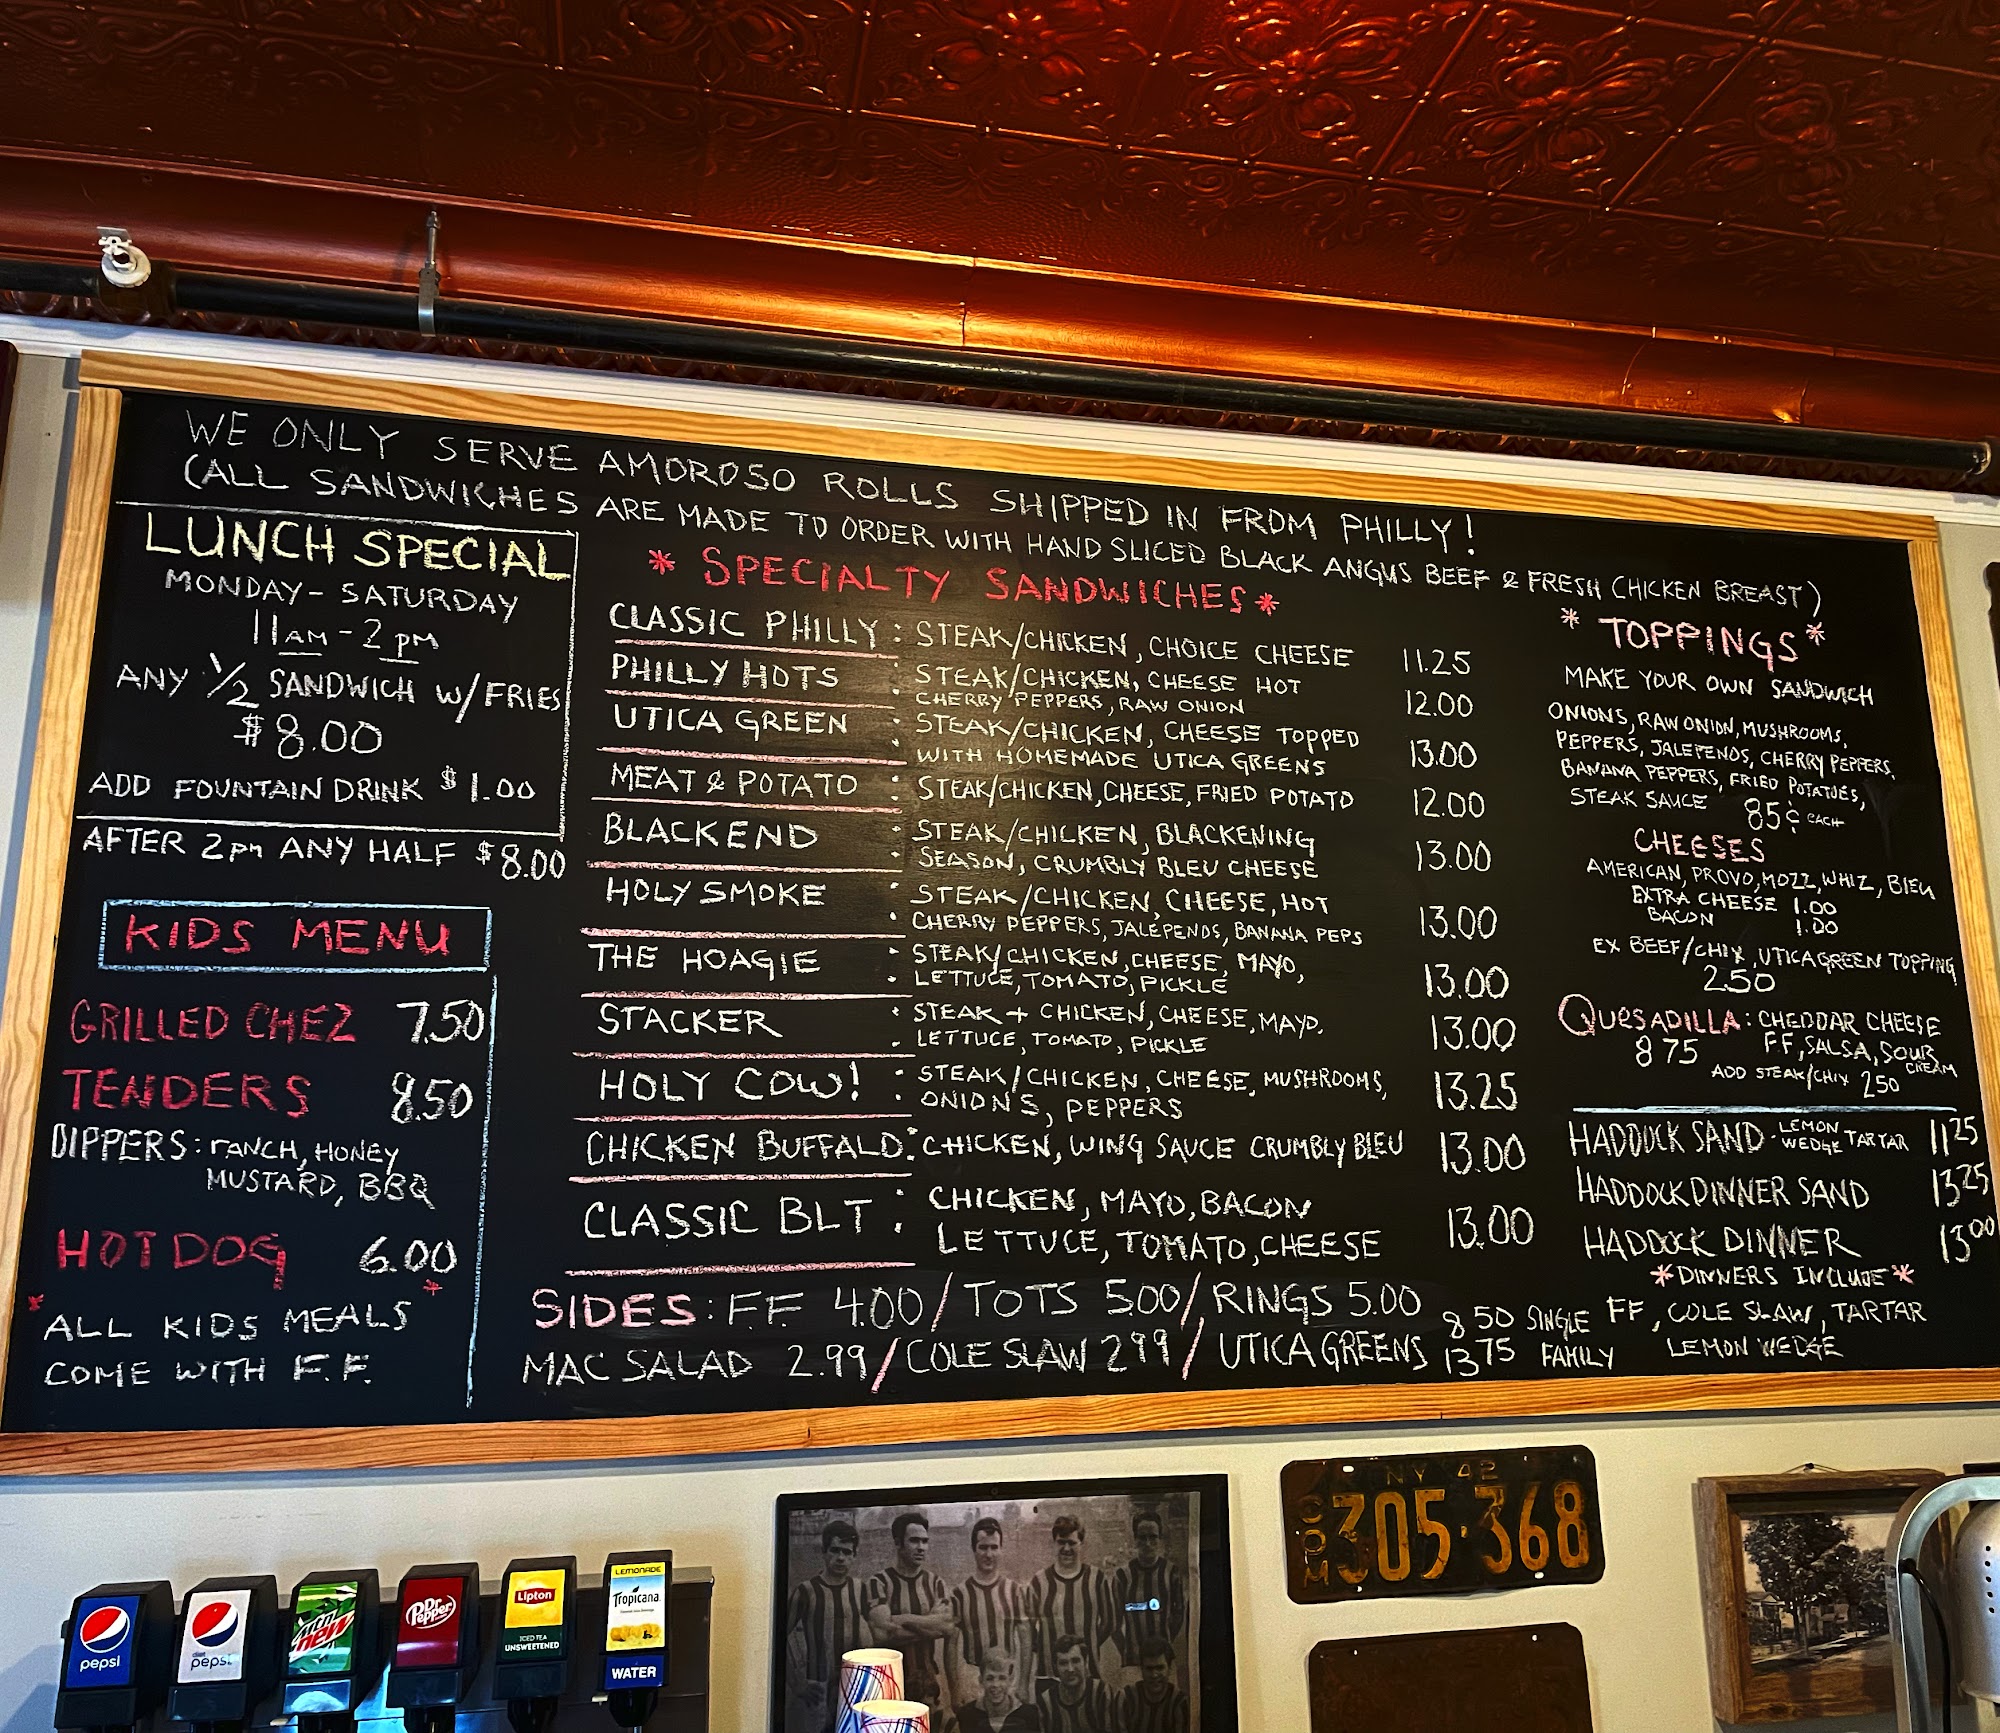 WE ONLY SERVE AMOROSO ROLLS SHIPPED IN FROM PHILLY!
(ALL SANDWICHES ARE MADE TO ORDER WITH HAND SLICED BLACK ANGUS BEEF & FRESH CHICKEN BREAST)
LUNCH SPECIAL
MONDAY - SATURDAY
11AM - 2PM
ANY 1/2 SANDWICH W/FRIES
$8.00
ADD FOUNTAIN DRINK $1.00
AFTER 2PM ANY HALF $8.00
KIDS MENU
GRILLED CHEZ 7.50
TENDERS 8.50
DIPPERS: RANCH, HONEY
MUSTARD, BBQ
HOT DOG 6.00
* ALL KIDS MEALS *
COME WITH F.F.
* SPECIALTY SANDWICHES *
CLASSIC PHILLY: STEAK/CHICKEN, CHOICE CHEESE 11.25
PHILLY HOTS : STEAK/CHICKEN, CHEESE HOT
CHERRY PEPPERS, RAW ONION 12.00
UTICA GREEN : STEAK/CHICKEN, CHEESE TOPPED
WITH HOMEMADE UTICA GREENS 13.00
MEAT & POTATO : STEAK/CHICKEN, CHEESE, FRIED POTATO 12.00
BLACKEND : STEAK/CHICKEN, BLACKENING
SEASON, CRUMBLY BLEU CHEESE 13.00
HOLY SMOKE : STEAK/CHICKEN, CHEESE, HOT
CHERRY PEPPERS, JALEPENOS, BANANA PEPS 13.00
THE HOAGIE : STEAK/CHICKEN, CHEESE, MAYO,
LETTUCE, TOMATO, PICKLE 13.00
STACKER : STEAK + CHICKEN, CHEESE, MAYO.
LETTUCE, TOMATO, PICKLE 13.00
HOLY COW! : STEAK/CHICKEN, CHEESE, MUSHROOMS,
ONIONS, PEPPERS 13.25
CHICKEN BUFFALO: CHICKEN, WING SAUCE CRUMBLY BLEU 13.00
CLASSIC BLT : CHICKEN, MAYO, BACON
LETTUCE, TOMATO, CHEESE 13.00
SIDES: F.F. 4.00/TOTS 5.00/RINGS 5.00
MAC SALAD 2.99/COLE SLAW 2.99/UTICA GREENS 8.50 SINGLE
13.75 FAMILY
* TOPPINGS *
MAKE YOUR OWN SANDWICH
ONIONS, RAW ONION, MUSHROOMS,
PEPPERS, JALEPENOS, CHERRY PEPPERS,
BANANA PEPPERS, FRIED POTATOES,
STEAK SAUCE 85¢ EACH
CHEESES
AMERICAN, PROVO, MOZZ, WHIZ, BLEU
EXTRA CHEESE 1.00
BACON 1.00
EX BEEF/CHIX, UTICA GREEN TOPPING
2.50
QUESADILLA: CHEDDAR CHEESE
8.75 F.F, SALSA, SOUR CREAM
ADD STEAK/CHIX 2.50
HADDOCK SAND - LEMON WEDGE TARTAR 11.25
HADDOCK DINNER SAND 13.25
HADDOCK DINNER 13.00
*DINNERS INCLUDE*
FF, COLE SLAW, TARTAR
LEMON WEDGE
NY 42
COM 305·368
pepsi
diet pepsi
mtn dew
Dr Pepper
Lipton
ICED TEA
UNSWEETENED
LEMONADE
Tropicana
WATER